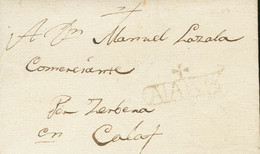 A Dn Manuel Lazala
Comerciante
Por Zerbera
en Calaf